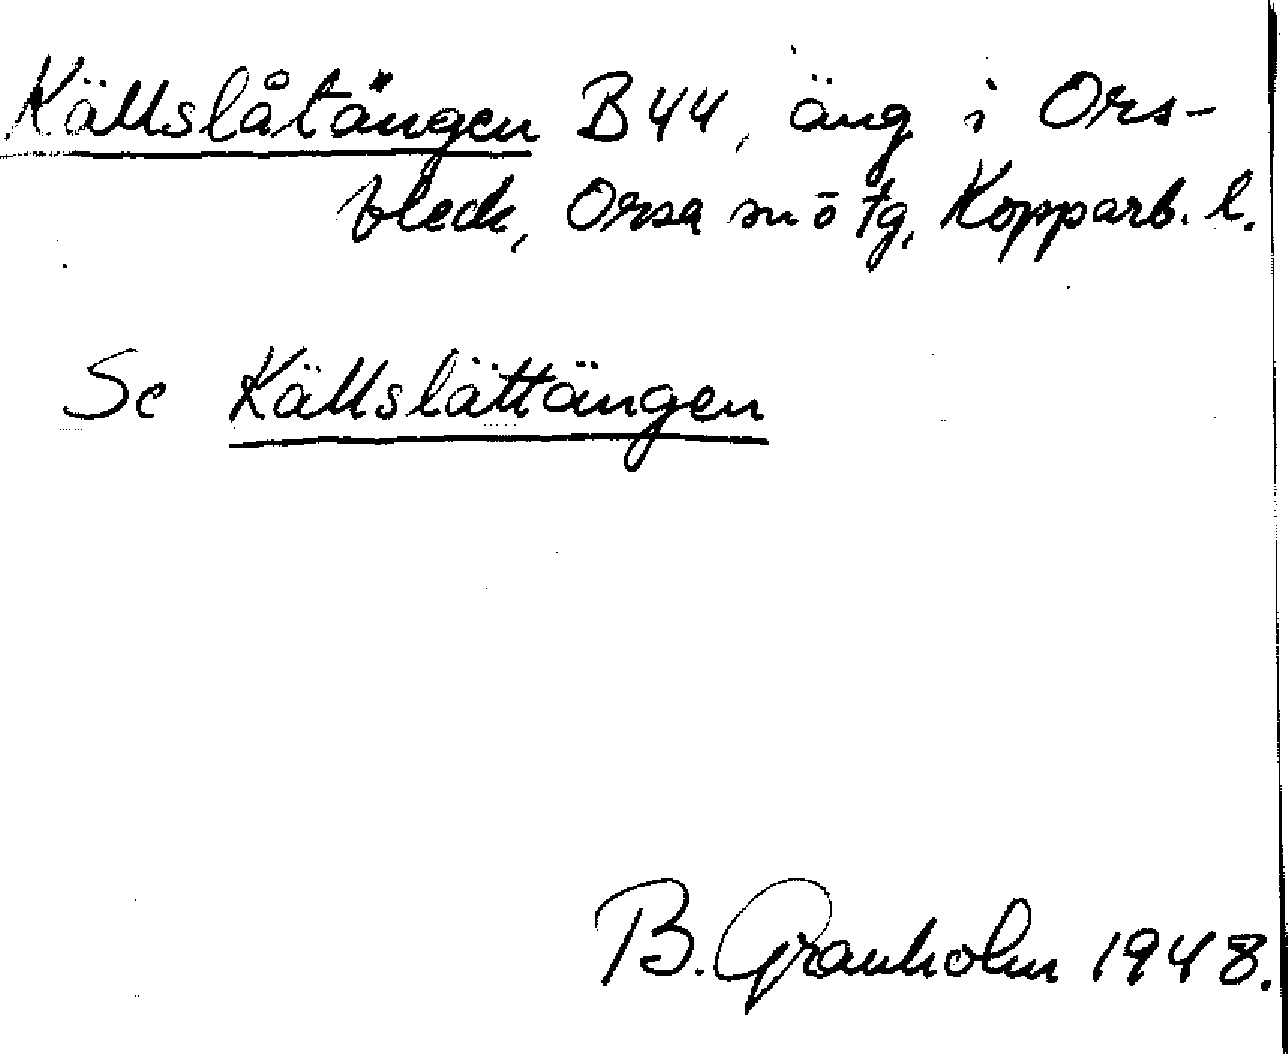 Källslåtängen B44, äng i Ors-
bleck, Orsa sn ō tg, Kopparb. l.
Se Källslättängen
B. Granholm 1948.